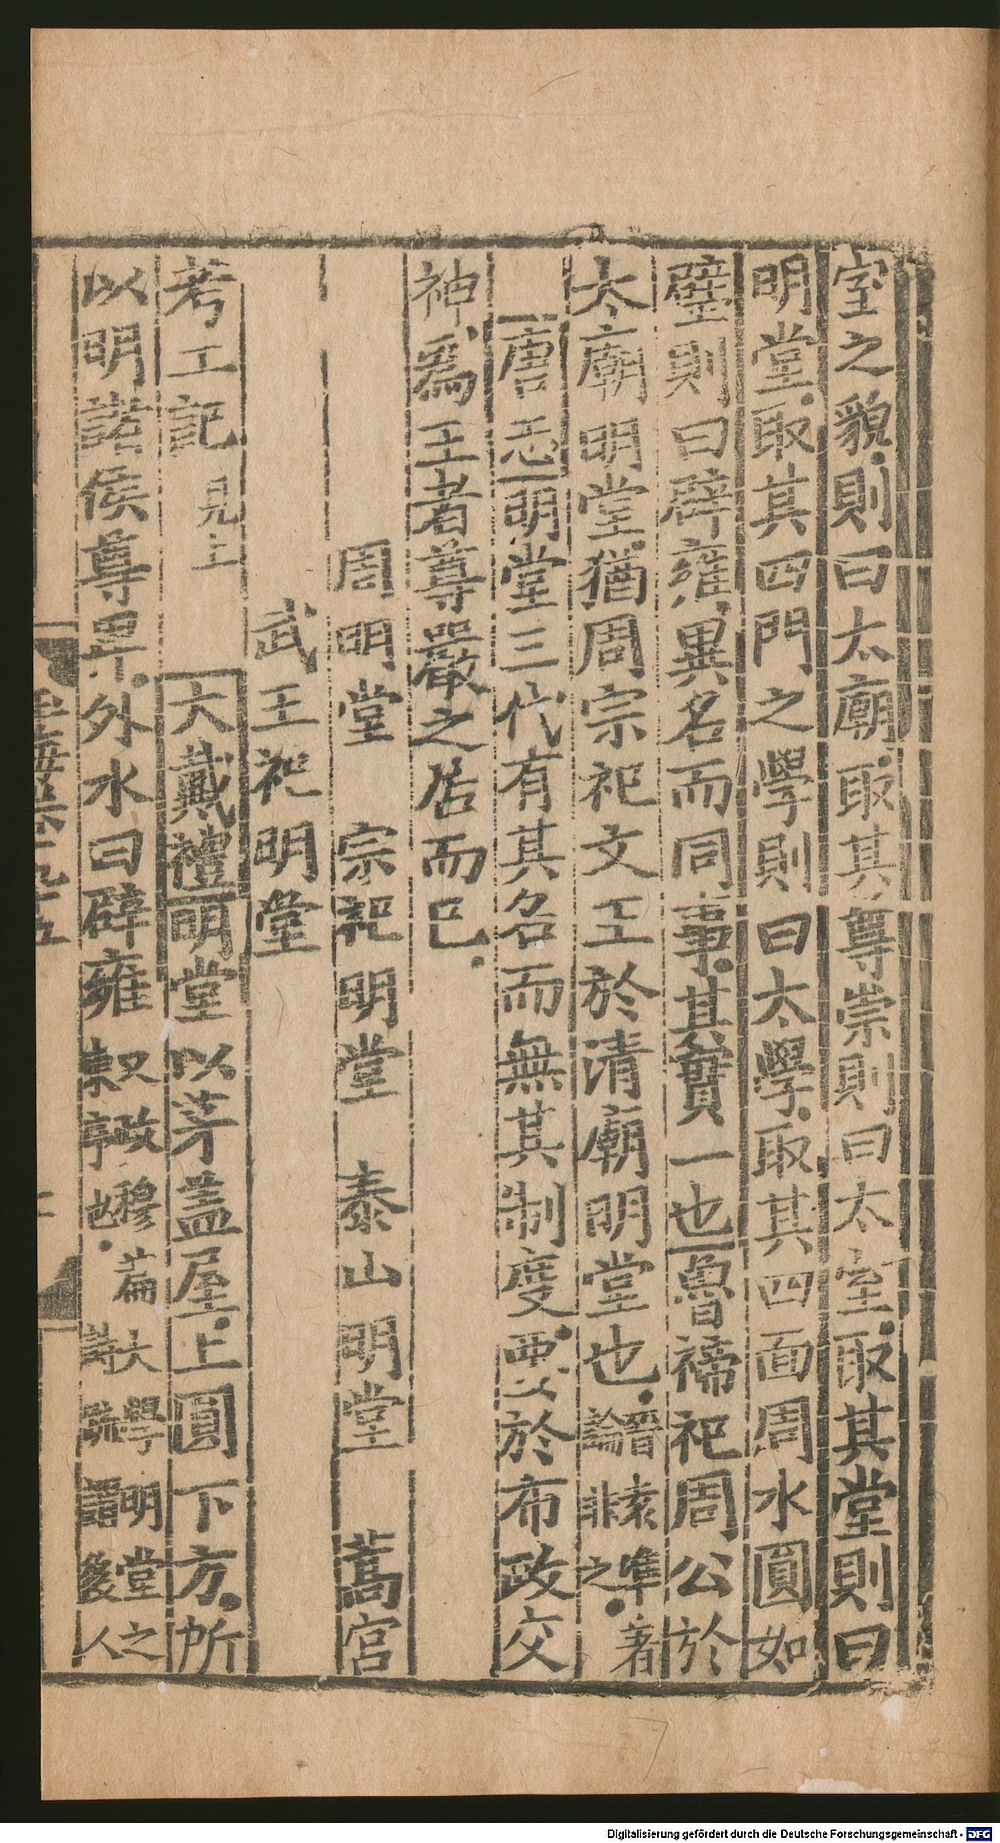 室之貌則曰太廟取其尊崇則曰太室取其堂則曰
明堂取其四門之學則曰太學取其四面周水圓如
璧則曰辟雍異名而同事其實一也魯禘祀周公於
太廟明堂猶周宗祀文王於清廟明堂也晉袁準著論非之
唐志明堂三代有其名而無其制度要於布政交
神為王者尊嚴之居而已
周明堂 宗祀明堂 泰山明堂 蒿宮
武王祀明堂
考工記見上 大戴禮明堂以茅蓋屋上圓下方所
以明諸侯尊卑外水曰辟雍又政穆篇大學明堂之東序也義疏謂後人
Digitalisierung gefördert durch die Deutsche Forschungsgemeinschaft - DFG